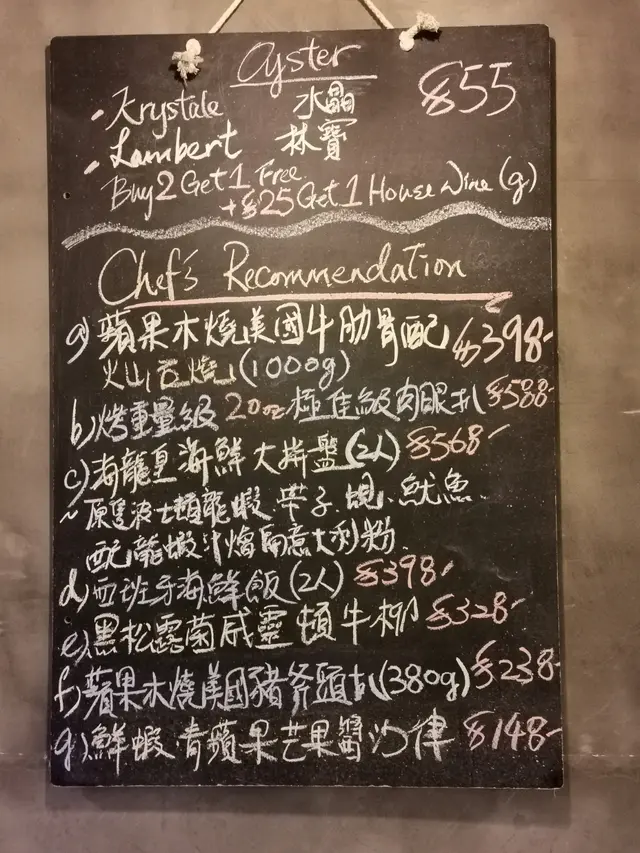 Oyster
• Krystale 水晶 $55
• Lambert 林寶
Buy 2 Get 1 Free
+$25 Get 1 House Wine (g)
Chef's Recommendation
a) 蘋果木燒美國牛肋骨配 $398-
火山石燒 (1000g)
b) 烤重量級 20oz 極佳級肉眼扒 $588-
c) 海龍皇海鮮大拼盤 (2人) $568-
~ 原隻波士頓龍蝦.帶子.蜆.魷魚.
配龍蝦汁燴扁意大利粉.
d) 西班牙海鮮飯 (2人) $398-
e) 黑松露菌威靈頓牛柳 $328-
f) 蘋果木燒美國豬斧頭扒 (380g) $238-
g) 鮮蝦.青蘋果芒果醬沙律 $148-